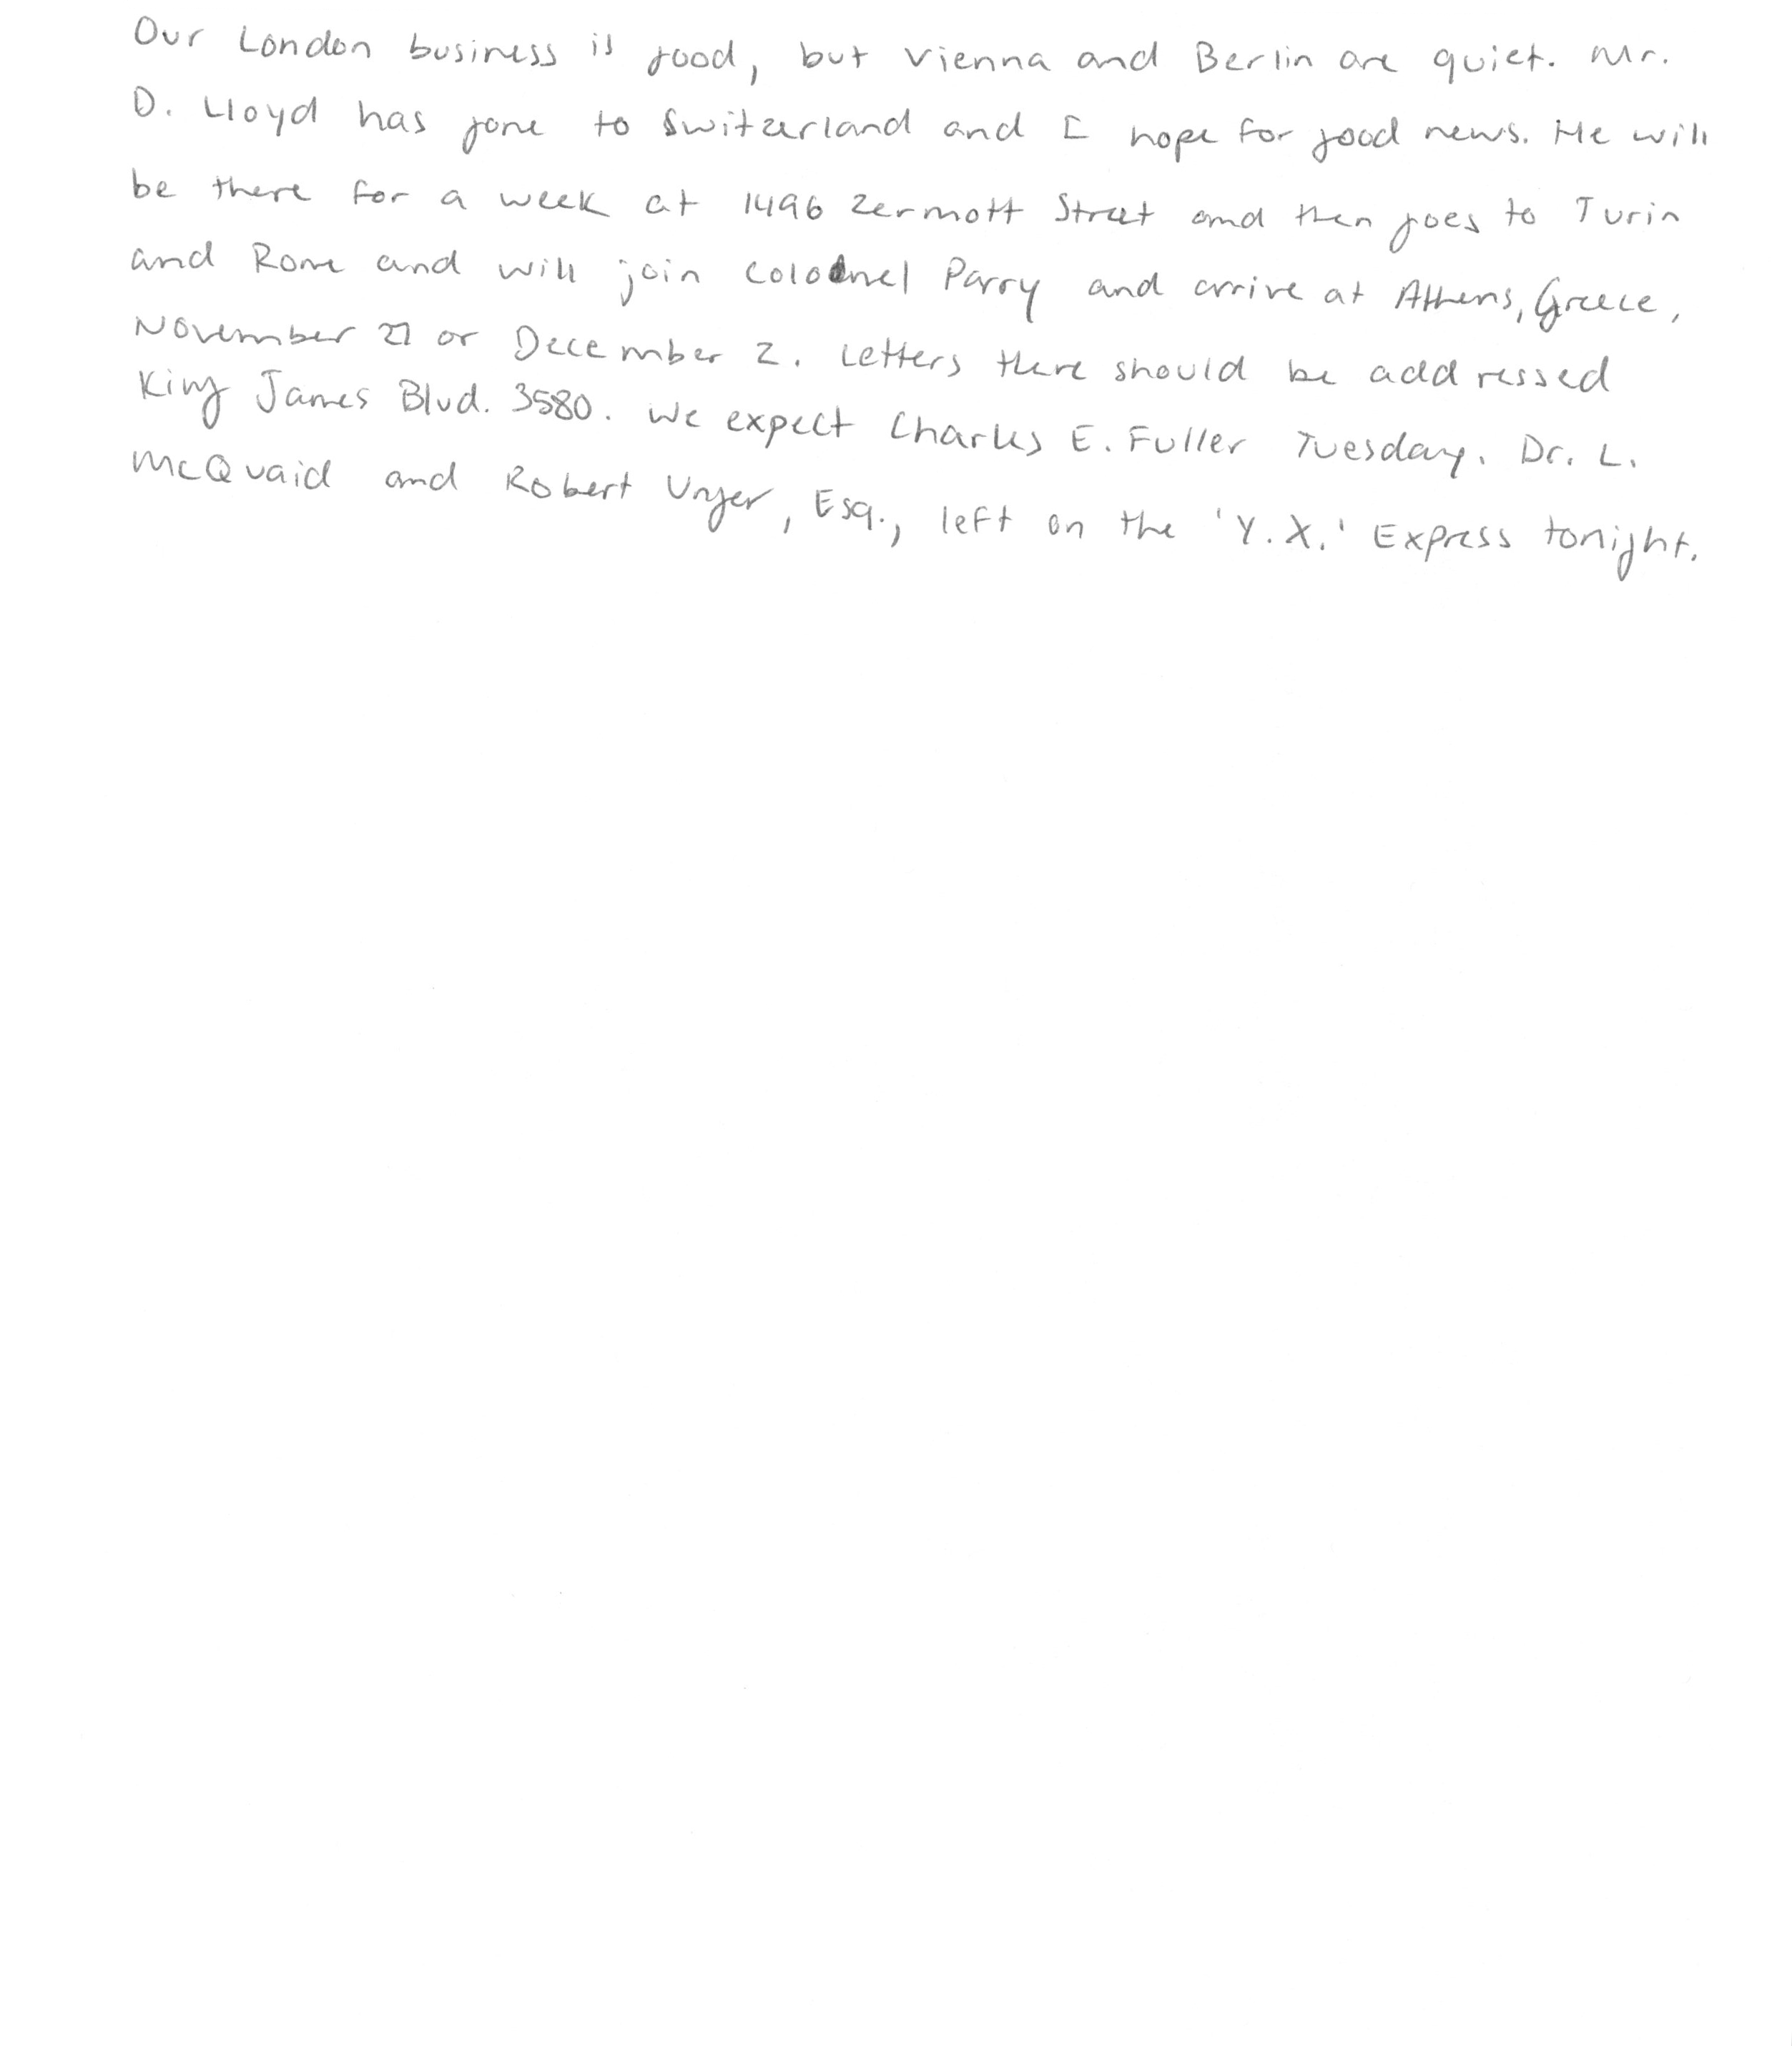 Our London business is good, but Vienna and Berlin are quiet. Mr.
D. Lloyd has gone to Switzerland and I hope for good news. He will
be there for a week at 1496 Zermott Street and then goes to Turin
and Rome and will join Colonel Parry and arrive at Athens, Greece,
November 27 or December 2. Letters there should be addressed
King James Blvd. 3580. We expect Charles E. Fuller Tuesday. Dr. L.
McQuaid and Robert Unger, Esq., left on the 'Y.X.' Express tonight.